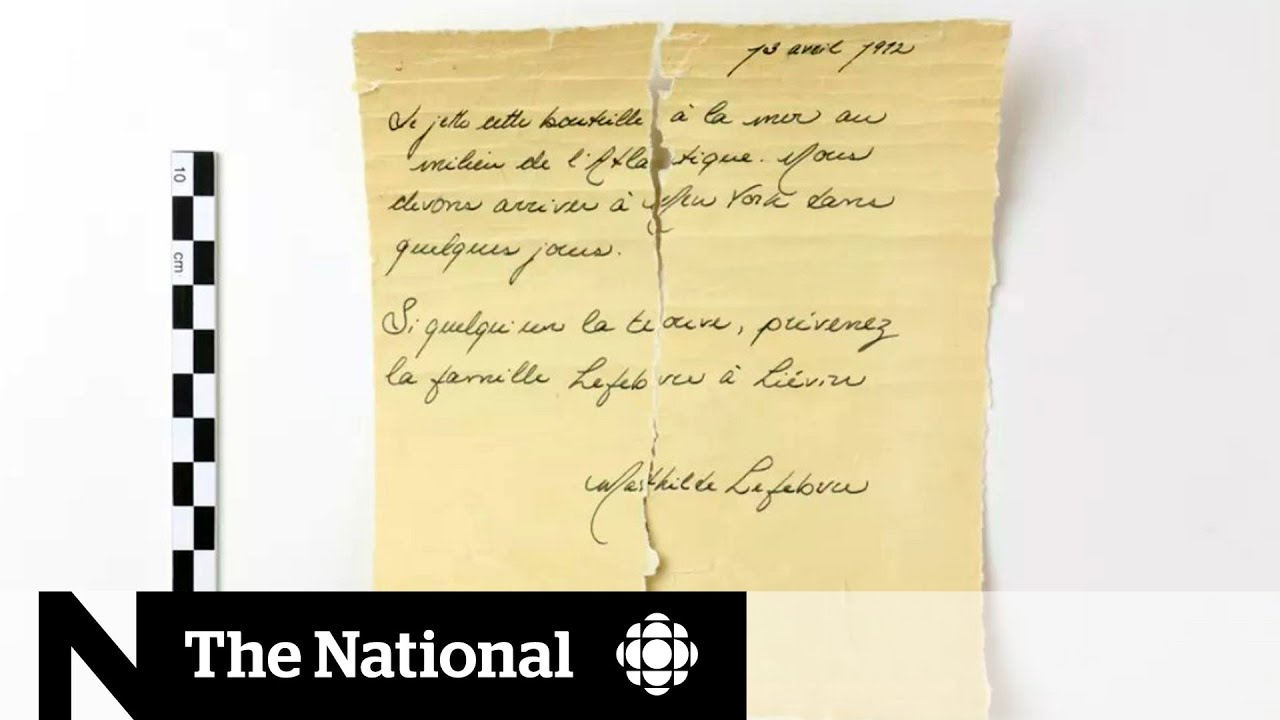 13 avril 1912
Je jette cette bouteille à la mer au
milieu de l'Atlantique. Nous
devons arriver à New York dans
quelques jours.
Si quelqu'un la trouve, prévenez
la famille Lefebvre à Liévin
Mathilde Lefebvre
10
cm
The National